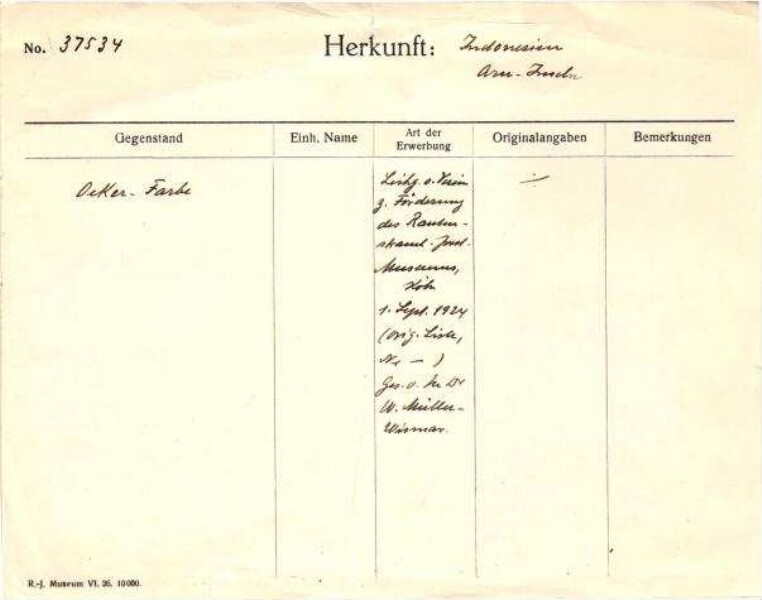 No. 37534
Herkunft: Indonesien
Aru-Inseln
Gegenstand
Einh. Name
Art der
Erwerbung
Originalangaben
Bemerkungen
Ocker-Farbe
v. Verein
z. Förderung
des Rauten-
strauch-Joest-
Museums,
Köln
1. Sept. 1924
(Orig. Liste,
No —)
Ges. v. Dr
W. Müller-
Wismar.
R.-J. Museum VI. 26. 10000.